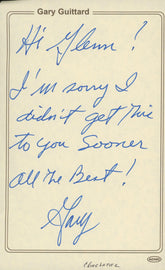 Gary Guittard
Hi Glenn!
I'm sorry I
didn't get this
to you Sooner
All the Best!
Gary